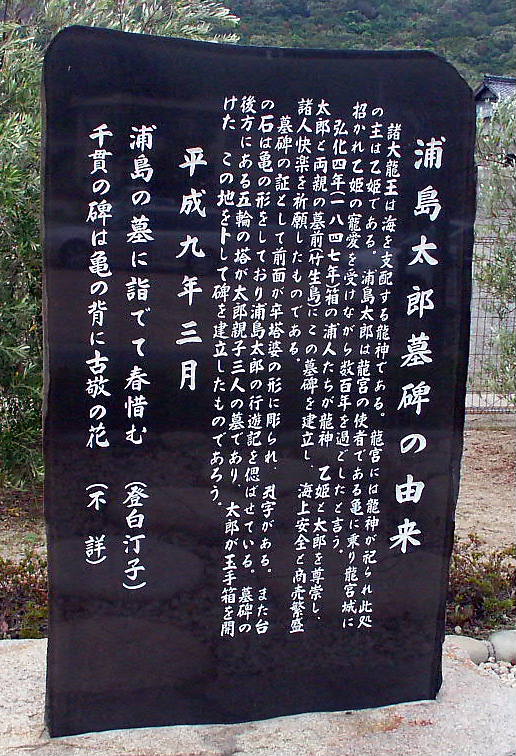 浦島太郎墓碑の由来
諸大龍王は海を支配する龍神である。龍宮には龍神が祀られ此処
の主は乙姫である。浦島太郎は龍宮の使者である亀に乗り龍宮城に
招かれ乙姫の寵愛を受けながら数百年を過ごしたと言う。
弘化四年一八四七年箱の浦人たちが龍神 乙姫と太郎を尊崇し、
太郎と両親の墓前竹生島にこの墓碑を建立し、海上安全と商売繁盛
諸人快楽を祈願したものである。
墓碑の証として前面が卒塔婆の形に彫られ、梵字がある。また台
の石は亀の形をしており浦島太郎の行遊記を偲ばせている。墓碑の
後方にある五輪の塔が太郎親子三人の墓であり、太郎が玉手箱を開
けた この地を卜して碑を建立したものであろう。
平成九年三月
浦島の墓に詣でて春惜む (登白汀子)
千貫の碑は亀の背に古敬の花 (不詳)